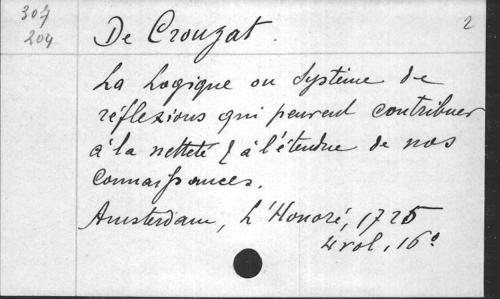 307
204
2
De Crouzat.
La Logique ou Système de
réflexions qui peuvent contribuer
à la netteté & à l'étendue de nos
connaissances.
Amsterdam, L'Honoré, 1725
4 vol, 16°